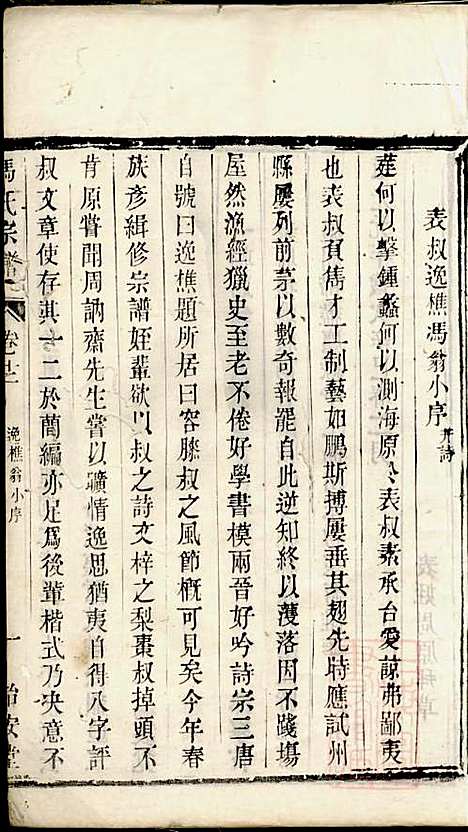 表叔逸樵馮翁小序 并詩
莛何以擊鍾蠡何以測海原於表叔素承台愛諒弗鄙夷
也表叔負雋才工制藝如鵬斯搏屢垂其翅先時應試州
縣屢列前茅以數奇報罷自此逆知終以濩落因不踐塲
屋然漁經獵史至老不倦好學書模兩晉好吟詩宗三唐
自號曰逸樵題所居曰容膝叔之風節槪可見矣今年春
族彥緝修宗譜姪輩欲以叔之詩文梓之梨棗叔掉頭不
肯原嘗聞周訥齋先生嘗以曠情逸思猶夷自得八字評
叔文章使存其一二於蕳編亦足爲後輩楷式乃决意不
馮氏宗譜 卷七 逸樵翁小序 一 怡安堂